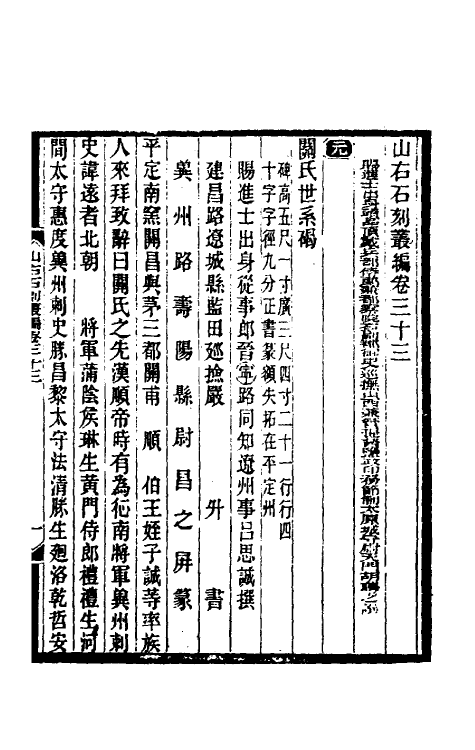 山右石刻叢編卷三十三
元
關氏世系碣
碑高五尺一寸廣三尺四寸二十一行行四
十字字徑九分正書篆額失拓在平定州
賜進士出身從事郎晉寧路同知遼州事呂思誠撰
建昌路遼城縣藍田廵撿嚴 升 書
兾州路壽陽縣尉昌之屏篆
平定南窯關昌與茅三都關甫 順 伯王姪子誠等率族
人來拜致辭曰關氏之先漢順帝時有為征南將軍兾州刺
史諱遠者北朝 將軍蒲陰侯琳生黃門侍郎禮禮生河
間太守惠度兾州刺史勝昌黎太守法清勝生廻洛乾哲安
山右石刻叢編卷三十三
一